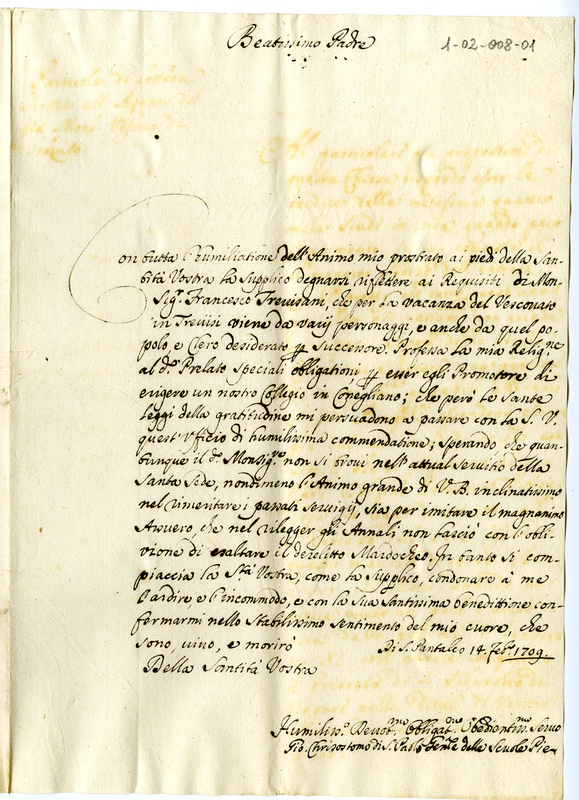 Beatissimo Padre
1-02-008-01
Con tutta l'humiliatione dell'Animo mio prostrato ai piedi della San-
tità Vostra la supplico degnarsi riflettere ai Requisiti di Mon-
Sig.r Francesco Trevisani, che per la vacanza del Vescovato
in Trevisi viene da varij personaggi, e anche da quel po-
polo, e Clero desiderato per successore. Professa la mia Relig.ne
al d.o Prelato speciali obligationi per esser egli Promotore di
erigere un nostro Collegio in Conegliano; che però le Sante
leggi della gratitudine mi persuadono a passare con la S. V.
quest'Ufficio di humilissima commendatione; sperando che quan-
tunque il d.o Monsig.re non si trovi nell'attual servitio della
Santa Sede, nondimeno l'Animo grande di V. B. inclinatissimo
nel rimeritare i passati servigij, sia per imitare il magnanimo
Assuero che nel rilegger gli Annali non lasciò con l'obli-
vione di esaltare il derelitto Mardocheo. In tanto si com-
piaccia la S.tà Vostra, come la supplico, condonare à me
l'ardire, e l'incommodo, e con la Sua Santissima benedittione con-
fermarmi nello stabilissimo sentimento del mio cuore, che
sono, vivo, e morirò
Di S. Pantaleo 14. Feb.ro 1709.
Della Santità Vostra
Humiliss.o Devot.mo Obligat.mo Obedientiss.mo Servo
Gio. Chrisostomo di S. Paolo Gen.le delle Scuole Pie